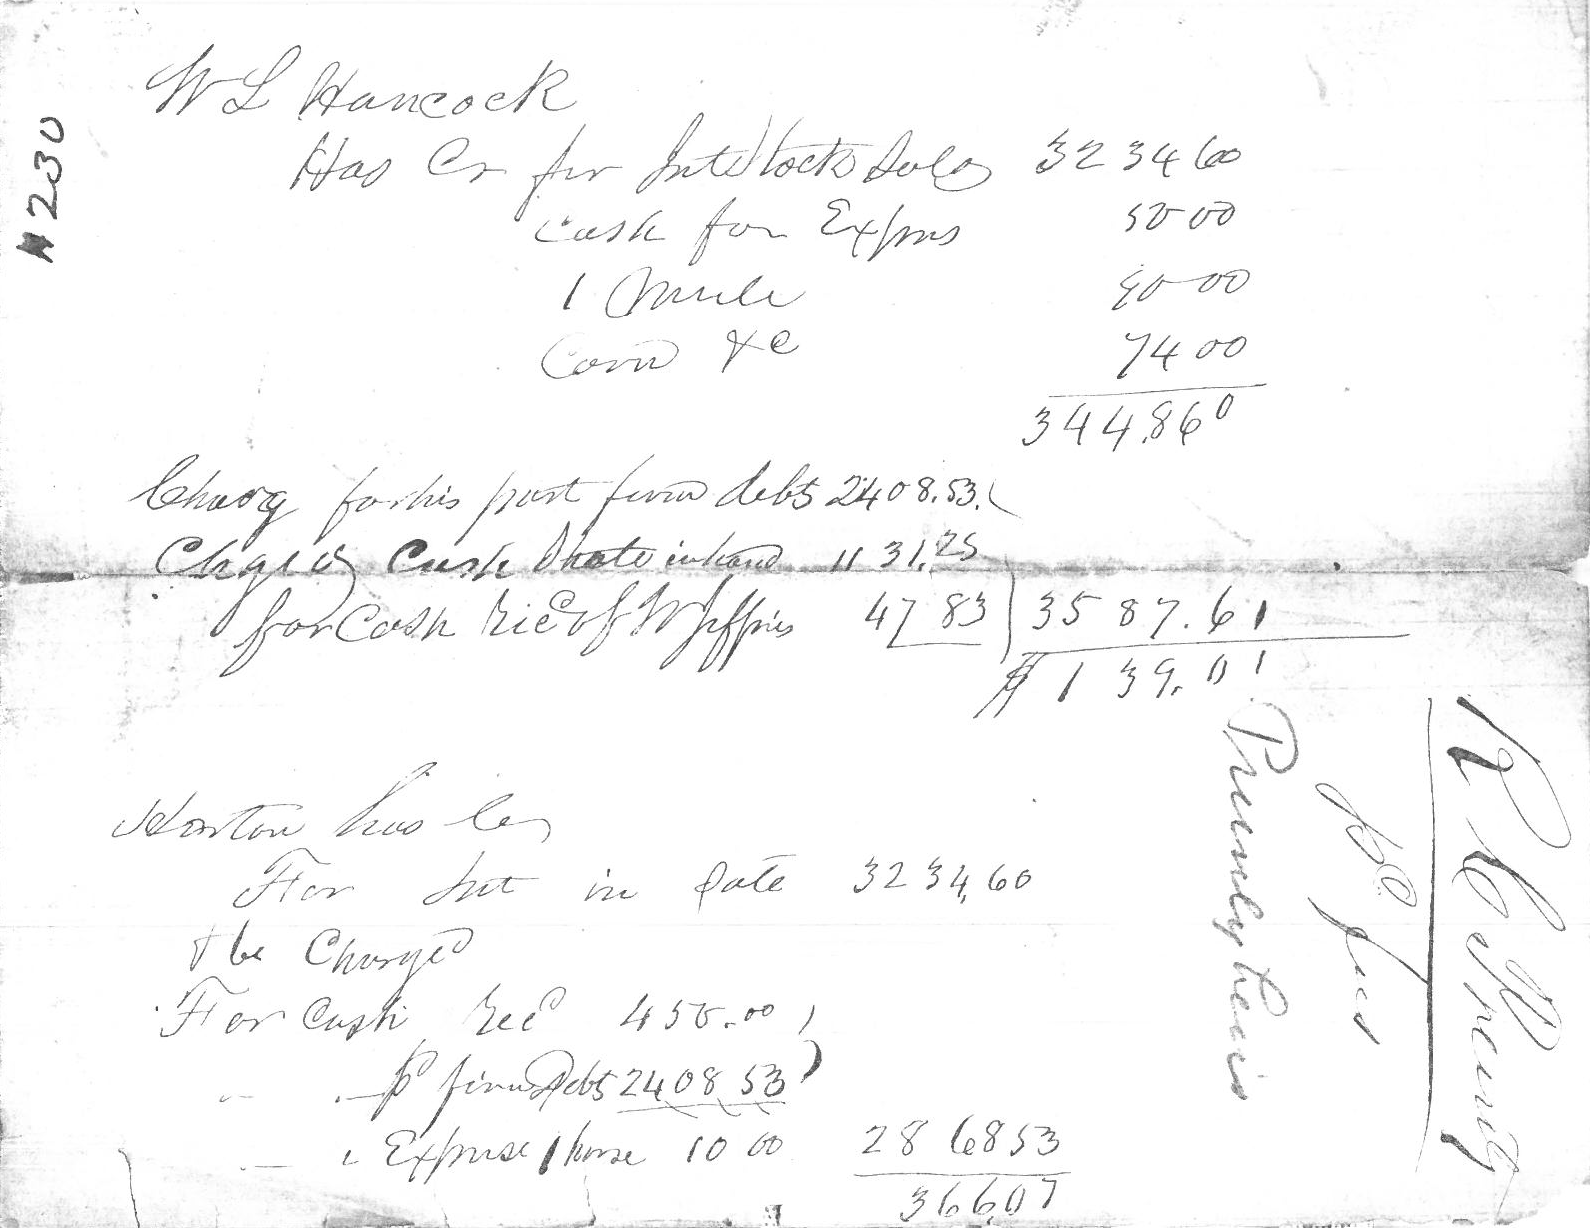 # 230
W L Hancock
Has Cr for Int Stock Sales 3234 60
Cash for Expns 50 00
1 Mule 90 00
Corn &c 74 00
3448,60
Charg for his part firm debts 2408.53
Chged Cash & note in hand 1131.25
for Cash Recd of W Jeffries 47 83 3587.61
$139.01
Horton has Cr
For Int in Sale 3234,60
& be Charged
For Cash Recd 450.00
" " Pd firm Debts 2408 53
" Expense 1 horse 10 00 2868 53
366,07
heirs